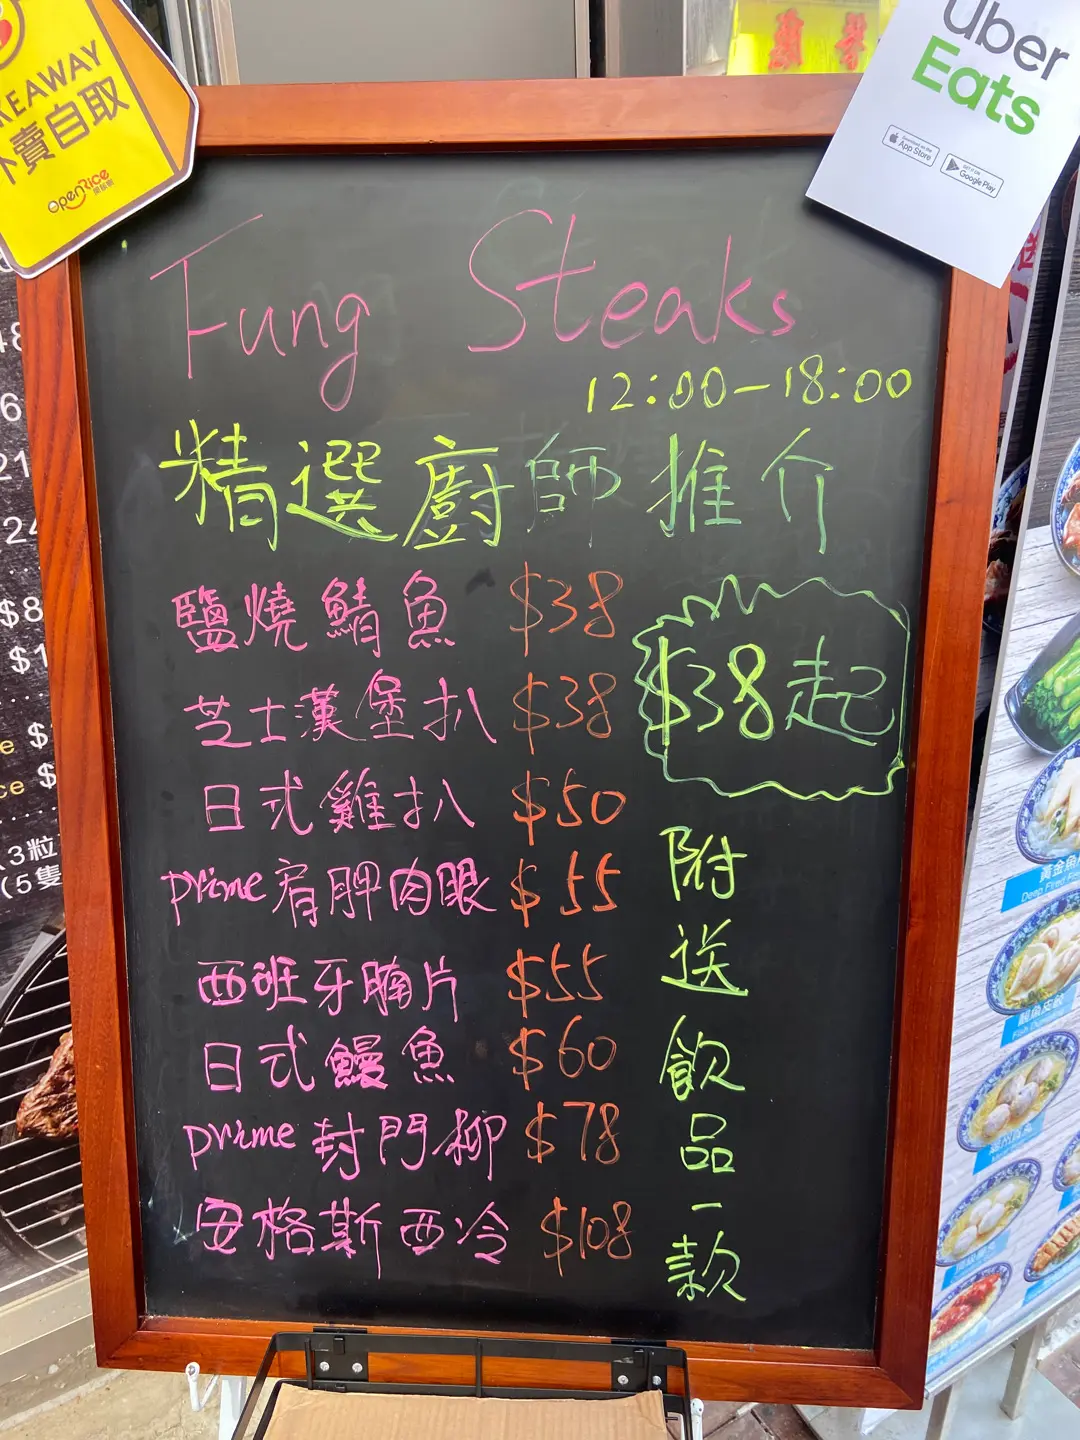 KEAWAY
外賣自取
OpenRice
開飯喇
Uber
Eats
Download on the
App Store
GET IT ON
Google Play
Fung Steaks
12:00－18:00
精選廚師推介
鹽燒鯖魚 $38
芝士漢堡扒 $38
日式雞扒 $50
prime 肩胛肉眼 $55
西班牙腩片 $55
日式鰻魚 $60
prime 封門柳 $78
安格斯西冷 $108
$38起
附送飲品一款
21
24
$8
$1
3粒
(5隻
黃金魚
Deep Fried